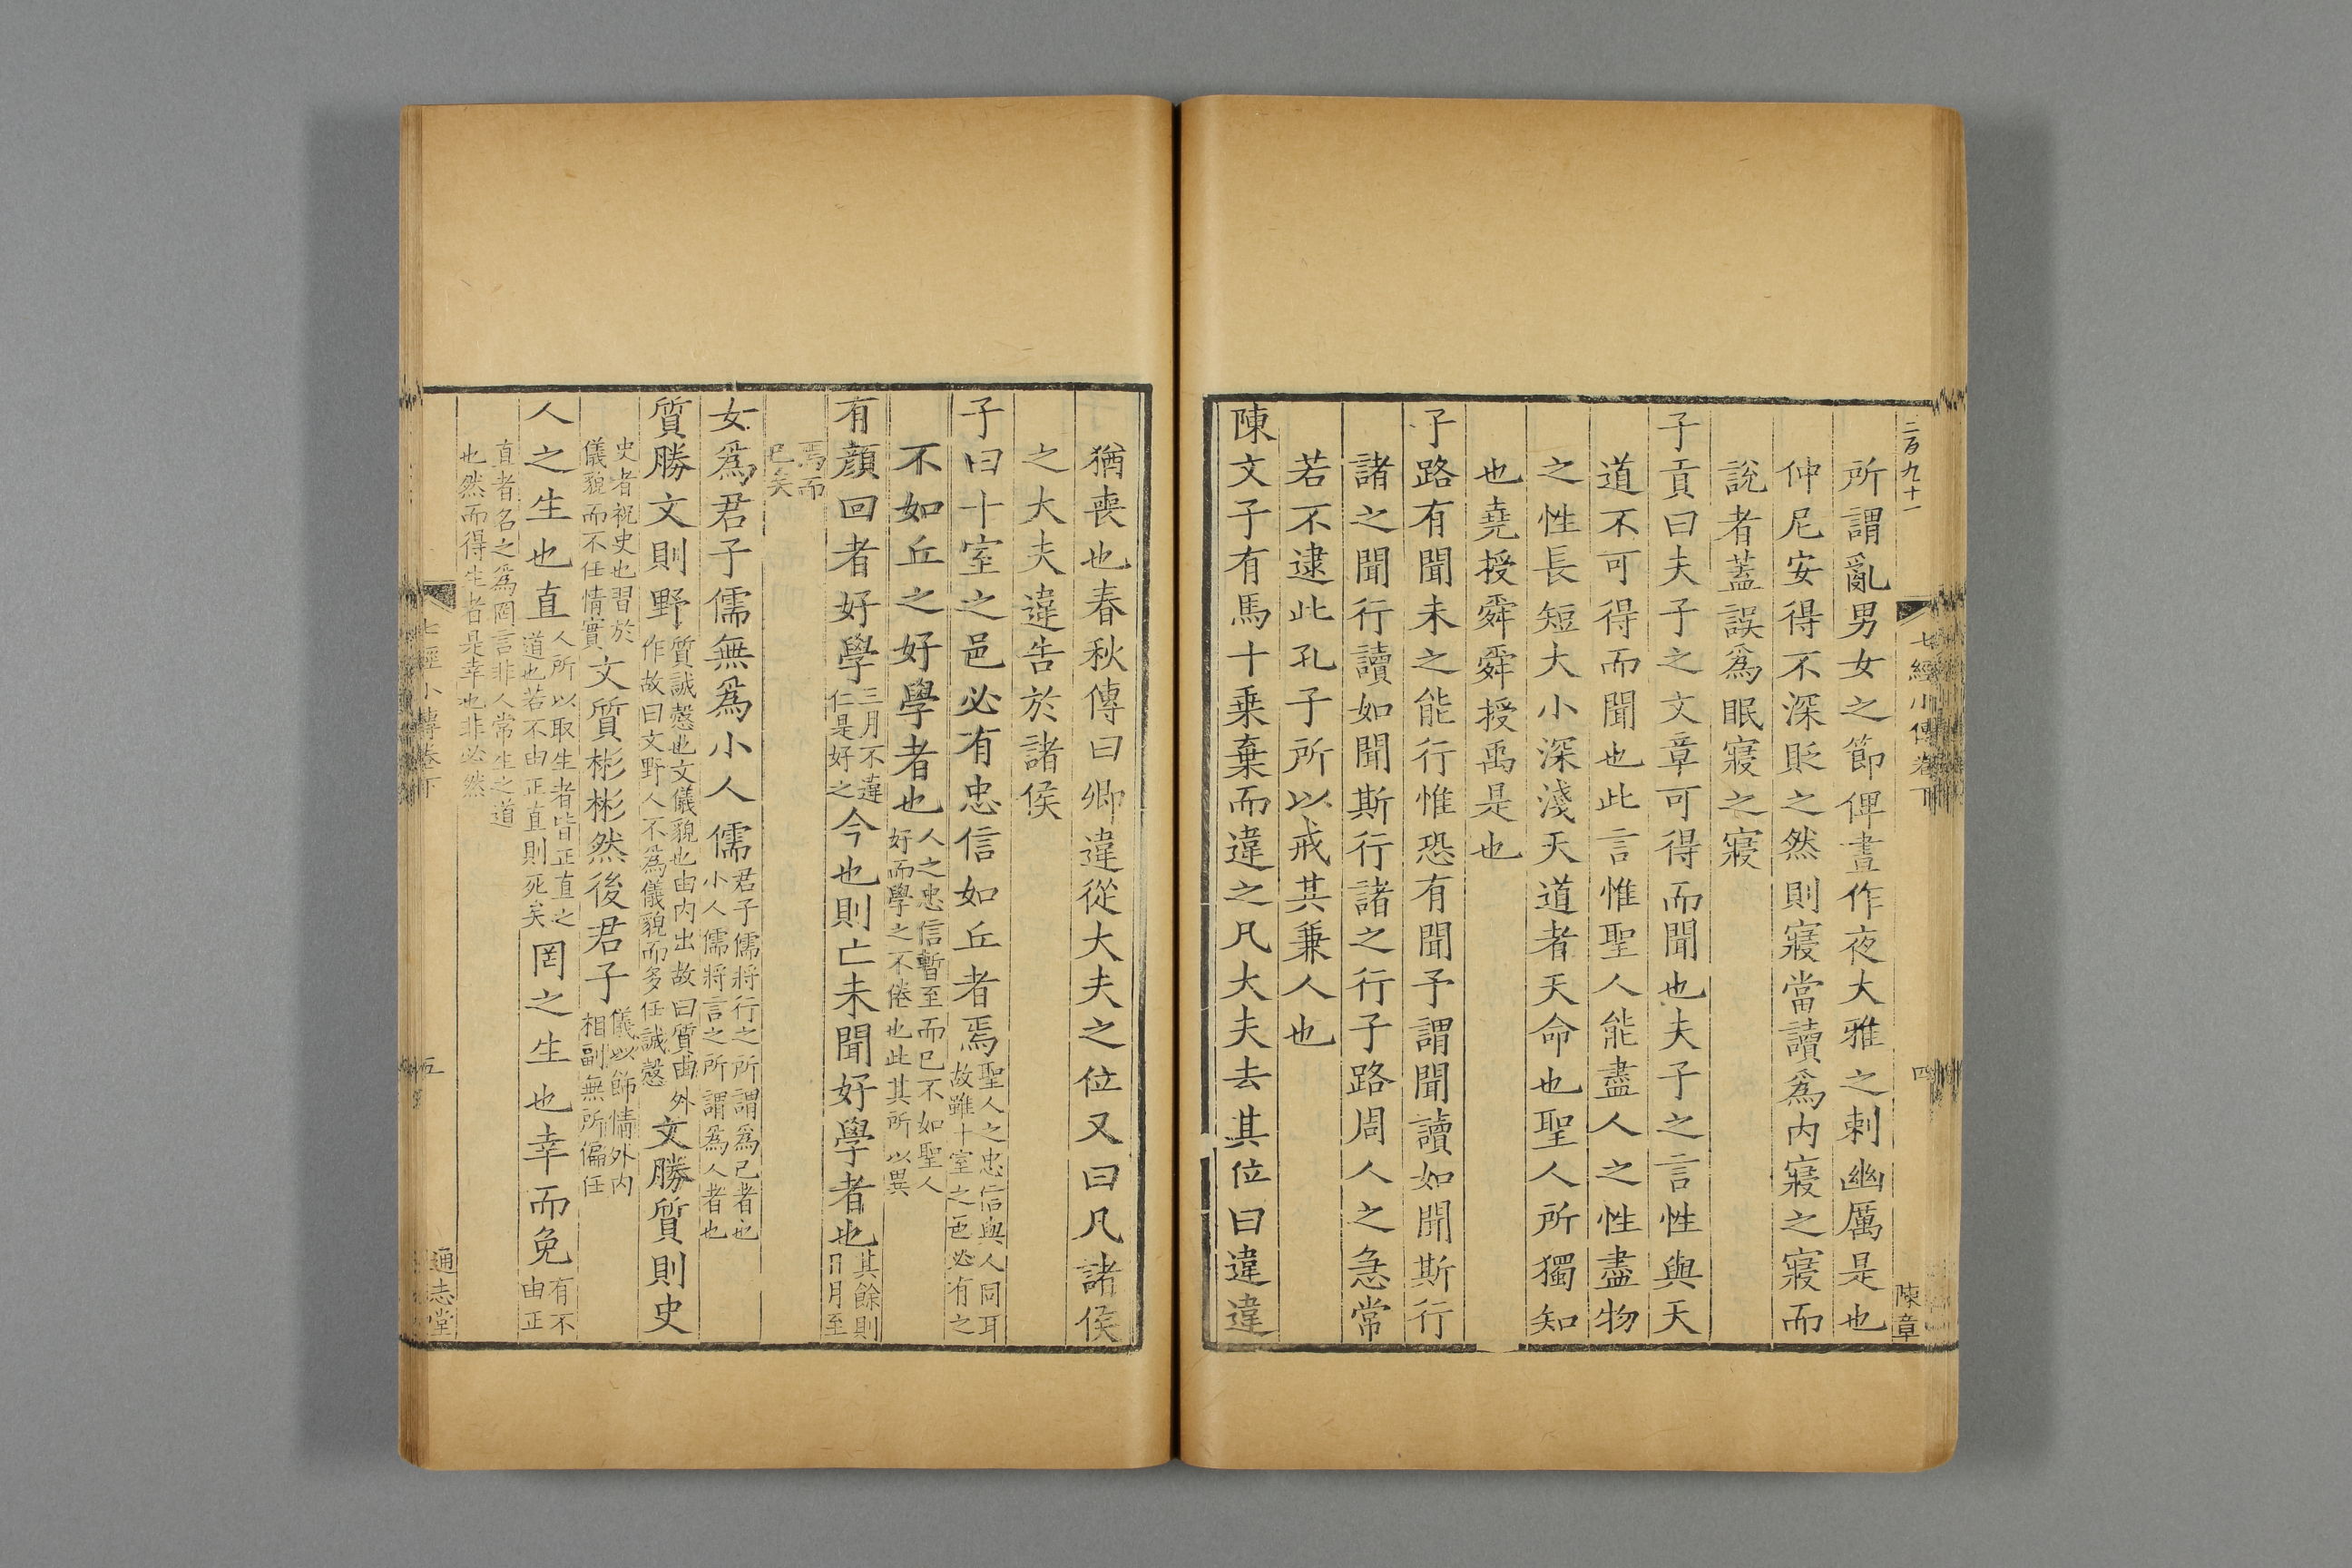 二百九十一
七經小傳卷下
四
陳章
所謂亂男女之節俾晝作夜大雅之刺幽厲是也
仲尼安得不深貶之然則寢當讀爲内寢之寢而
說者蓋誤爲眠寢之寢
子貢曰夫子之文章可得而聞也夫子之言性與天
道不可得而聞也此言惟聖人能盡人之性盡物
之性長短大小深淺天道者天命也聖人所獨知
也堯授舜舜授禹是也
子路有聞未之能行惟恐有聞予謂聞讀如聞斯行
諸之聞行讀如聞斯行諸之行子路周人之急常
若不逮此孔子所以戒其兼人也
陳文子有馬十乗棄而違之凡大夫去其位曰違違
猶喪也春秋傳曰卿違從大夫之位又曰凡諸侯
之大夫違告於諸侯
子曰十室之邑必有忠信如丘者焉聖人之忠信與人同耳故雖十室之邑必有之
不如丘之好學者也人之忠信暫至而已不如聖人好而學之不倦也此其所以異
有顔回者好學三月不違仁是好之今也則亡未聞好學者也其餘則日月至
焉而已矣
女爲君子儒無爲小人儒君子儒將行之所謂爲己者也小人儒將言之所謂爲人者也
質勝文則野質誠慤也文儀貌也由内出故曰質由外作故曰文野人不爲儀貌而多任誠慤文勝質則史
史者祝史也習於儀貌而不任情實文質彬彬然後君子儀以飾情外内相副無所偏任
人之生也直人所以取生者皆正直之道也若不由正直則死矣罔之生也幸而免有不由正
直者名之爲罔言非人常生之道也然而得生者是幸也非必然
七經小傳卷下
五
通志堂